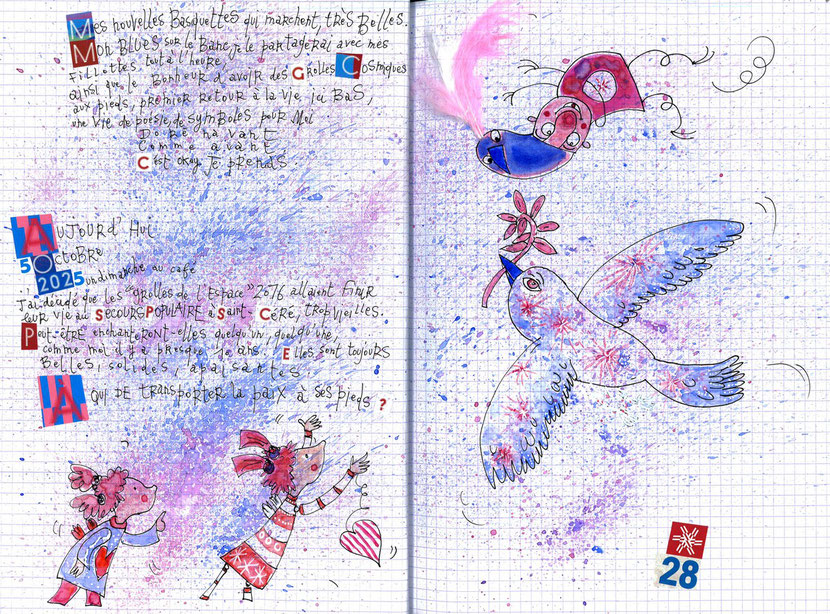 Mes nouvelles Basquettes qui marchent, très Belles.
Mon Blues sur le Banc, je le partagerai avec mes
Fillottes, tout à l'heure.
ainsi que le Bonheur d'avoir des Grolles Cosmiques
aux pieds, premier retour à la vie ici Bas,
une vie de poésie, de symboles pour Moi
Dorénavant
Comme avant
C'est okay, je prends.
Aujourd'Hui
5 Octobre
2025 un dimanche au café
J'ai décidé que les "grolles de l'Espace" 2076 allaient finir
leur vie au Secours Populaire à Saint-Céré, trop vieilles.
Peut-être enchanteront-elles quelqu'un, quelqu'une,
comme moi il y a presque 10 ans. Elles sont toujours
Belles, solides, apaisantes
À qui de transporter la paix à ses pieds ?
28